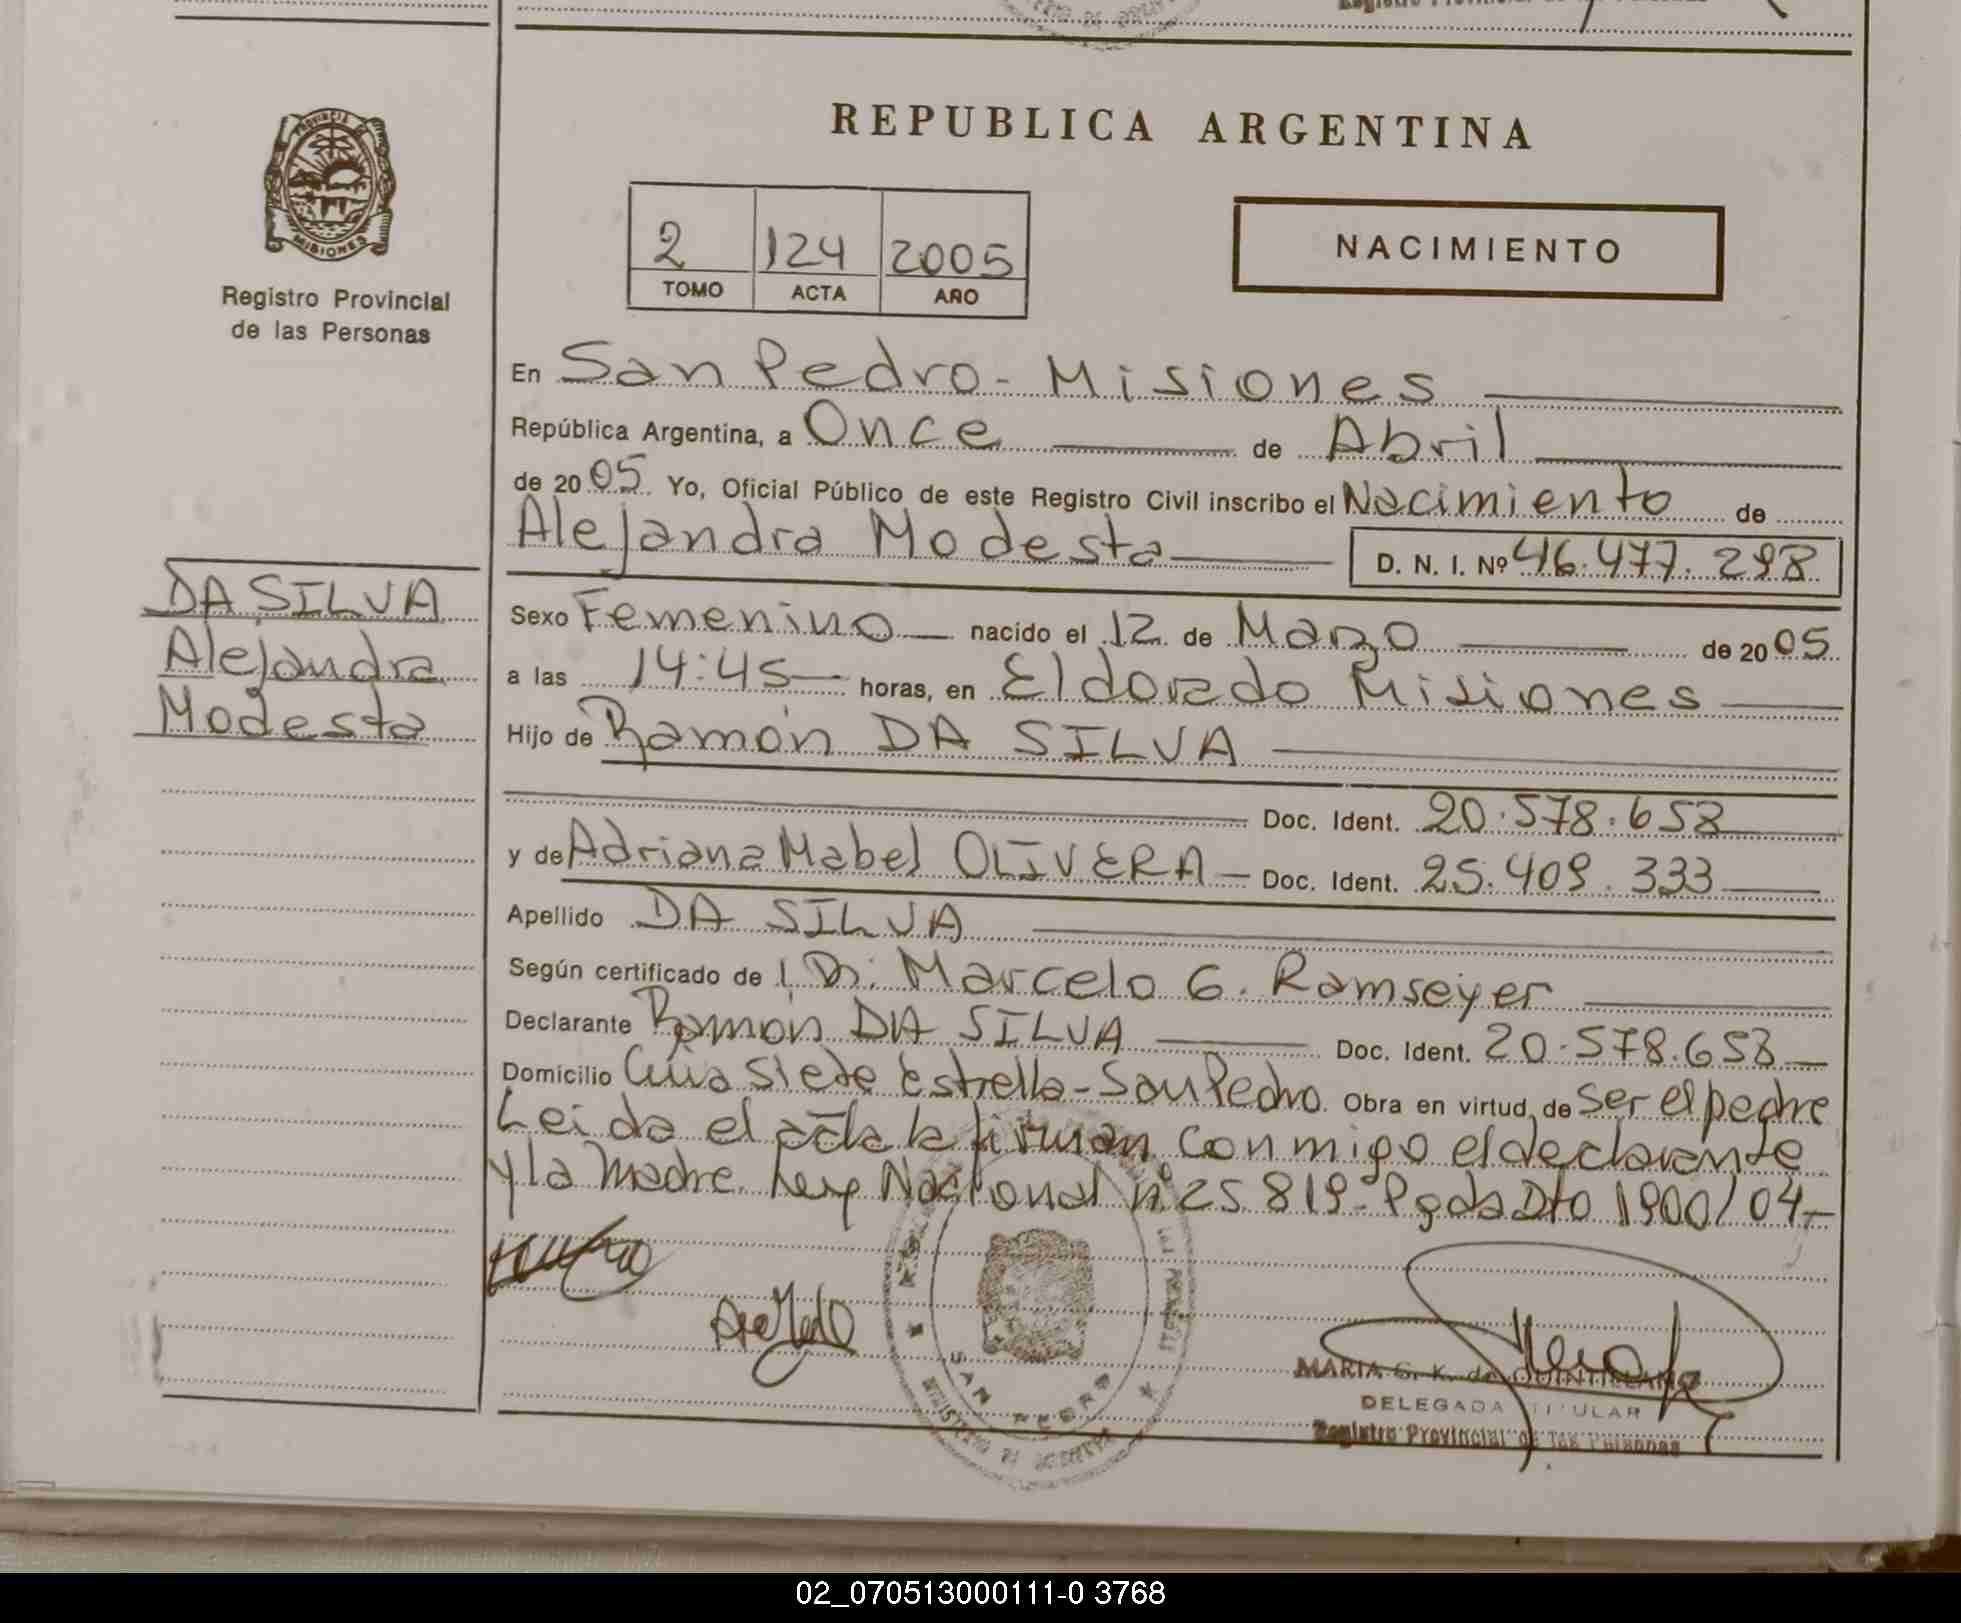 REPUBLICA ARGENTINA
PROVINCIA DE
MISIONES
Registro Provincial
de las Personas
2 124 2005
TOMO ACTA AÑO
NACIMIENTO
En San Pedro - Misiones
República Argentina, a Once de Abril
de 2005 Yo, Oficial Público de este Registro Civil inscribo el Nacimiento de
Alejandra Modesta D. N. I. Nº 46.477.298
DA SILVA
Alejandra
Modesta
Sexo Femenino nacido el 12 de Marzo de 2005
a las 14:45 horas, en Eldorado Misiones
Hijo de Ramón DA SILVA
Doc. Ident. 20.578.658
y de Adriana Mabel OLIVERA Doc. Ident. 25.409.333
Apellido DA SILVA
Según certificado de Dr. Marcelo G. Ramseyer
Declarante Ramon DA SILVA Doc. Ident. 20.578.658
Domicilio Siete Estrella - San Pedro Obra en virtud de ser el padre
Leida el acta la firman conmigo el declarante
y la madre. Ley Nacional nº 25.819 - Pgda Dto 1900/04-
SAN PEDRO
MARIA G. K. de QUINTILLANO
DELEGADA TITULAR
Registro Provincial de las Personas
02_070513000111-0 3768